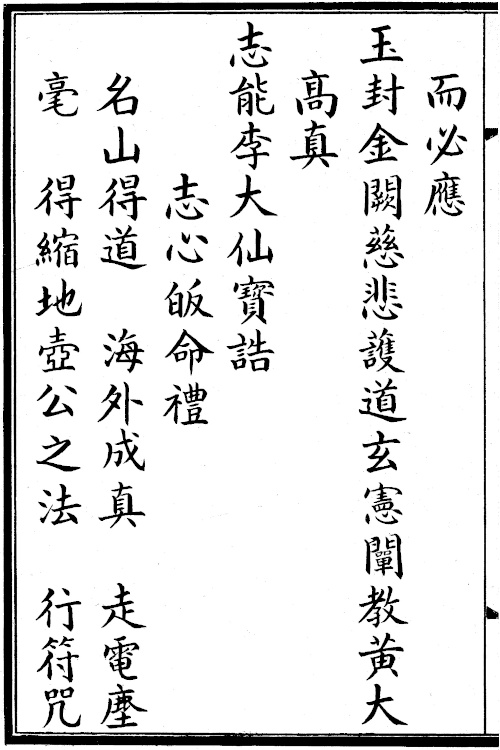 而必應
玉封金闕慈悲護道玄憲闡教黃大
高真
志能李大仙寶誥
志心皈命禮
名山得道 海外成真 走電塵
毫 得縮地壺公之法 行符咒